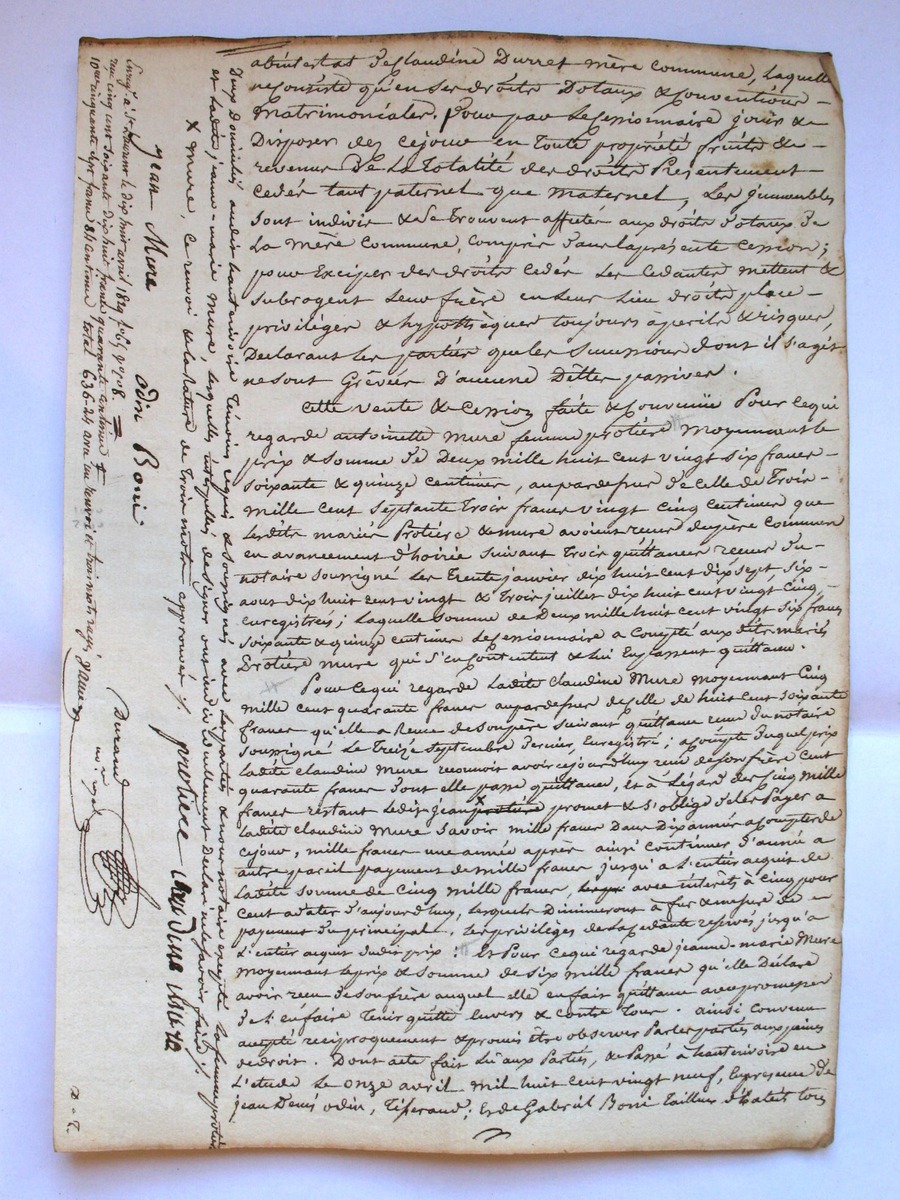 abintestat de Claudine Durret mère commune, laquelle
ne consiste qu'en ses droits Dotaux & Conventions
Matrimoniales. Pour par le Cessionnaire jouir &
Disposer dez cejour en toute propriété fruits &
revenus De la totalité des droits Présentement
cedés tant paternel que maternel, Les jmmeubles
sont indivis & se trouvent affectés aux droits dotaux de
La mère commune, compris dans la présente Cession;
pour Exciper des droits cedés les Cedantes mettent &
subrogent leur frère en leur lieu droits place
privilèges & hypothèques toujours à perils & risques,
Declarant les parties que les Successions dont il s'agit
ne sont Grévées D'aucunes Dettes passives.
Cette vente & Cession faite & Convenüe Pour ce qui
regarde antoinette Mure femme protière moyennant le
prix & somme de Deux mille huit cent vingt six francs
soixante & quinze centimes, aupardessus de celle de Trois
mille cent septante trois francs vingt cinq centimes que
lesdits mariés Protière & Mure avoient reçus du père commun
en avancement d'hoirie suivant trois quittances reçues du
notaire soussigné les Trente janvier dix huit cent dix sept, six
aout dix huit cent vingt & Trois juillet dix huit cent vingt cinq,
enregistrés; laquelle somme de Deux mille huit cent vingt six francs
soixante & quinze centimes le Cessionnaire a Compté aux dits mariés
Protière Mure qui s'en contentent & lui En passent quittance.
Pour ce qui regarde Ladite Claudine Mure moyennant Cinq
mille cent quarante francs aupardessus de celle de huit cent soixante
francs qu'elle a Reçue de son père suivant quittance reçue du notaire
soussigné Le Treize septembre Dernier, Enregistré; acompte duquel prix
Ladite Claudine Mure reconnoit avoir cejourd'huy reçu de son frère Cent
quarante francs dont elle passe quittance, et à l'égard des Cinq mille
francs restant ledit jean × protière promet & s'oblige de les Payer a
Ladite Claudine Mure savoir mille francs Dans Dix années a Compter de
cejour, mille francs une année après ainsi Continuer d'année a
autre pareil payement de mille francs jusqu'a L'entier acquit de
Ladite somme de Cinq mille francs, avec intérêts à Cinq pour
Cent a dater d'aujourd'huy, lesquels Diminueront à fur & mesure de
payement du principal. Les privilèges de la Cedante reservés jusqu'a
L'entier acquit dudit prix. Et Pour ce qui regarde jeanne-marie Mure
moyennant le prix & Somme de Six mille francs qu'elle Déclare
avoir reçu de son frère auquel elle en fait quittance avec promesse
de l'en faire Tenir quitte envers & contre Tous. ainsi convenu
accepté réciproquement & promis être observer Par les parties aux peines
de droit. Dont acte fait Lû aux Parties, & Passé à hauterivoire en
L'etude Le onze avril mil huit cent vingt neuf, En présence de
jean Denis odin, Tisserand; & de Gabriel Boni Tailleur d'habits tous
Deux Domiciliés audit hauterivoire Témoins requis & soussignés avec les parties & nous notaire excepté la femme protière
et ladite jeanne-marie Mure, lesquelles interpellées de signer ont individuellement Declaré ne savoir faire /.
× Mure, ce renvoi & la rature de trois mots approuvés /.
jean Mure odin Boni protière Claudine Mure
Durand
Enreg. à St Laurent le dix huit avril 1829
cinq cent soixante dix huit francs quarante centimes
total 636-24